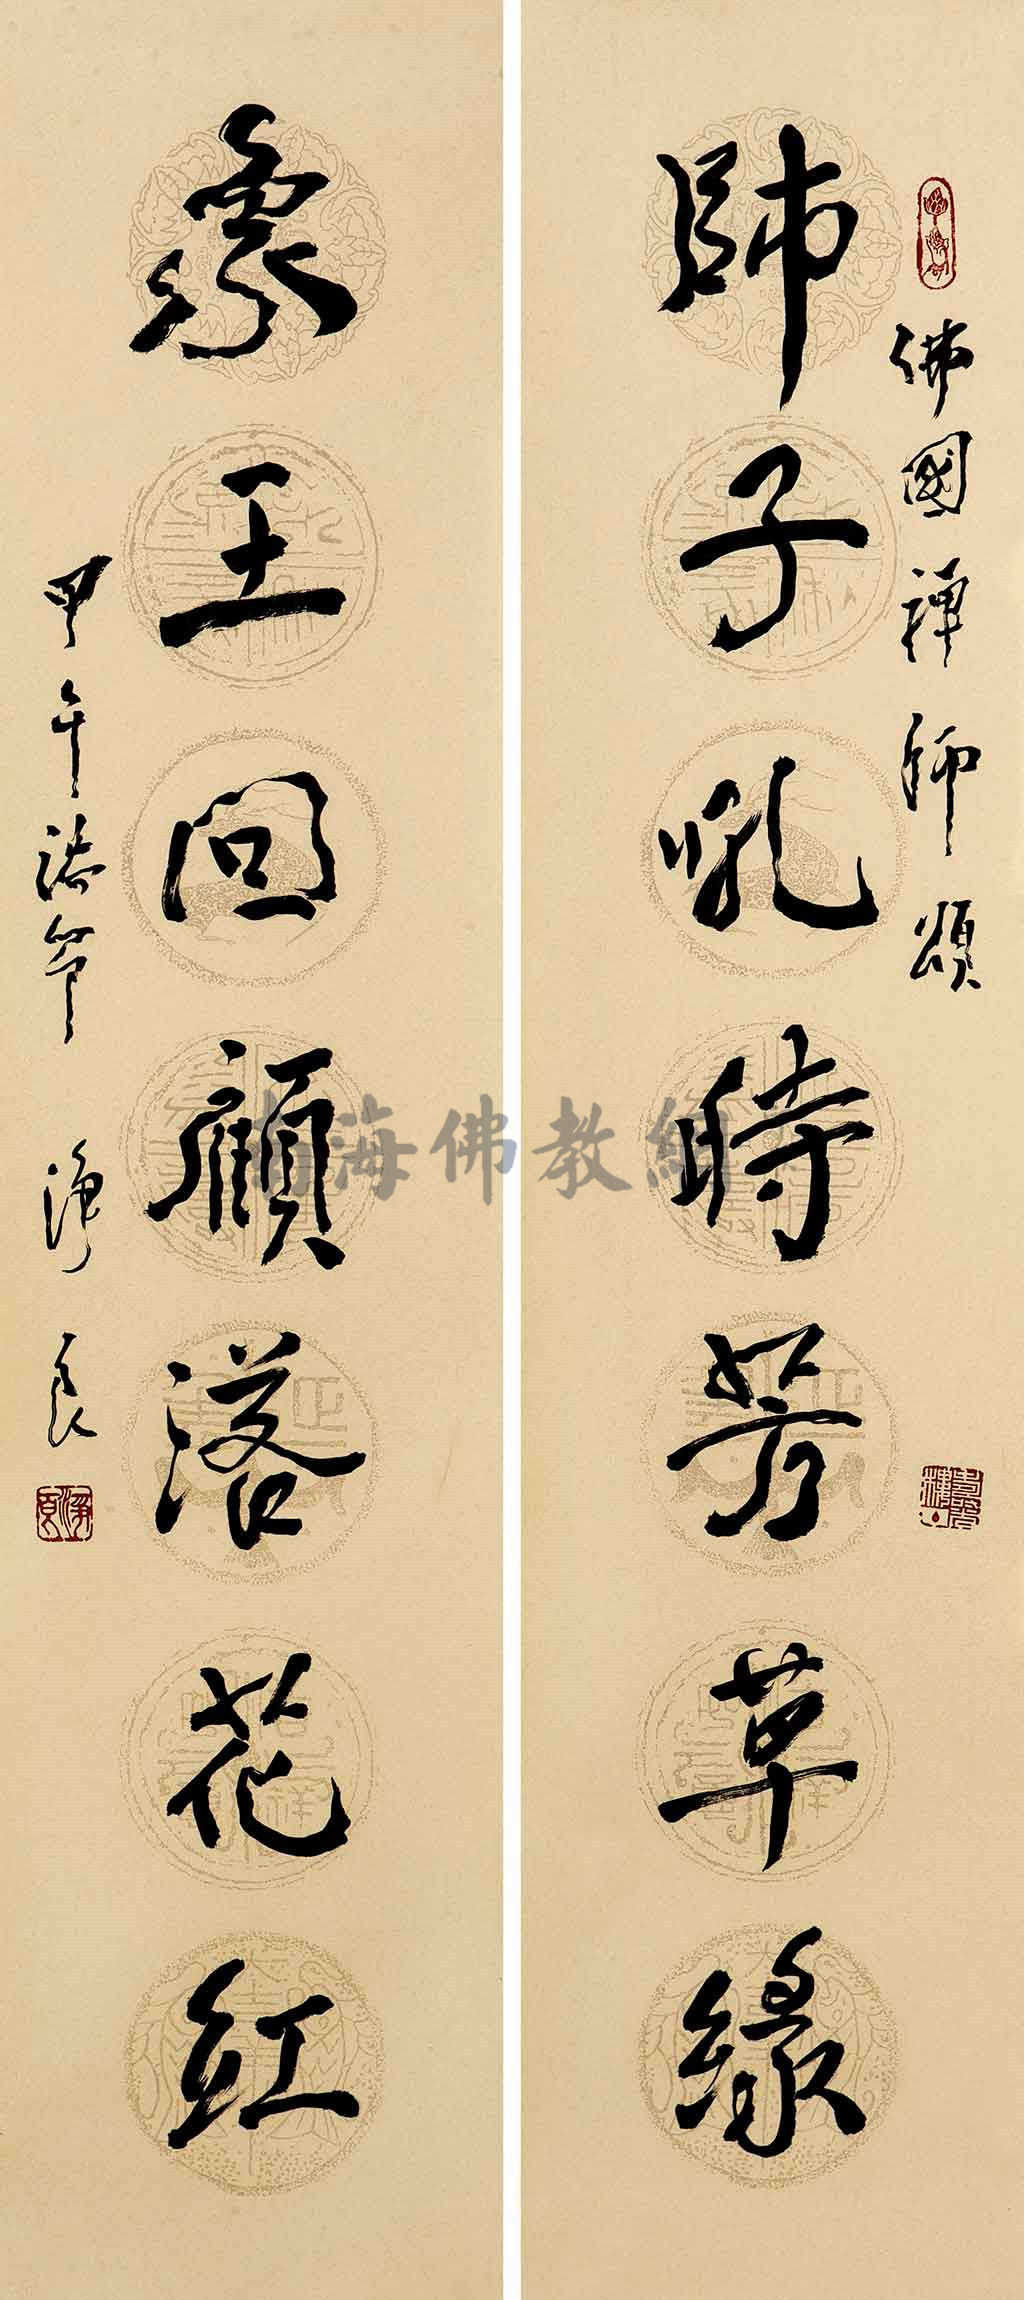 佛國禪師頌
師子吼時芳草綠
象王回顧落花紅
甲午 節 淨良
淨良
南海佛教網